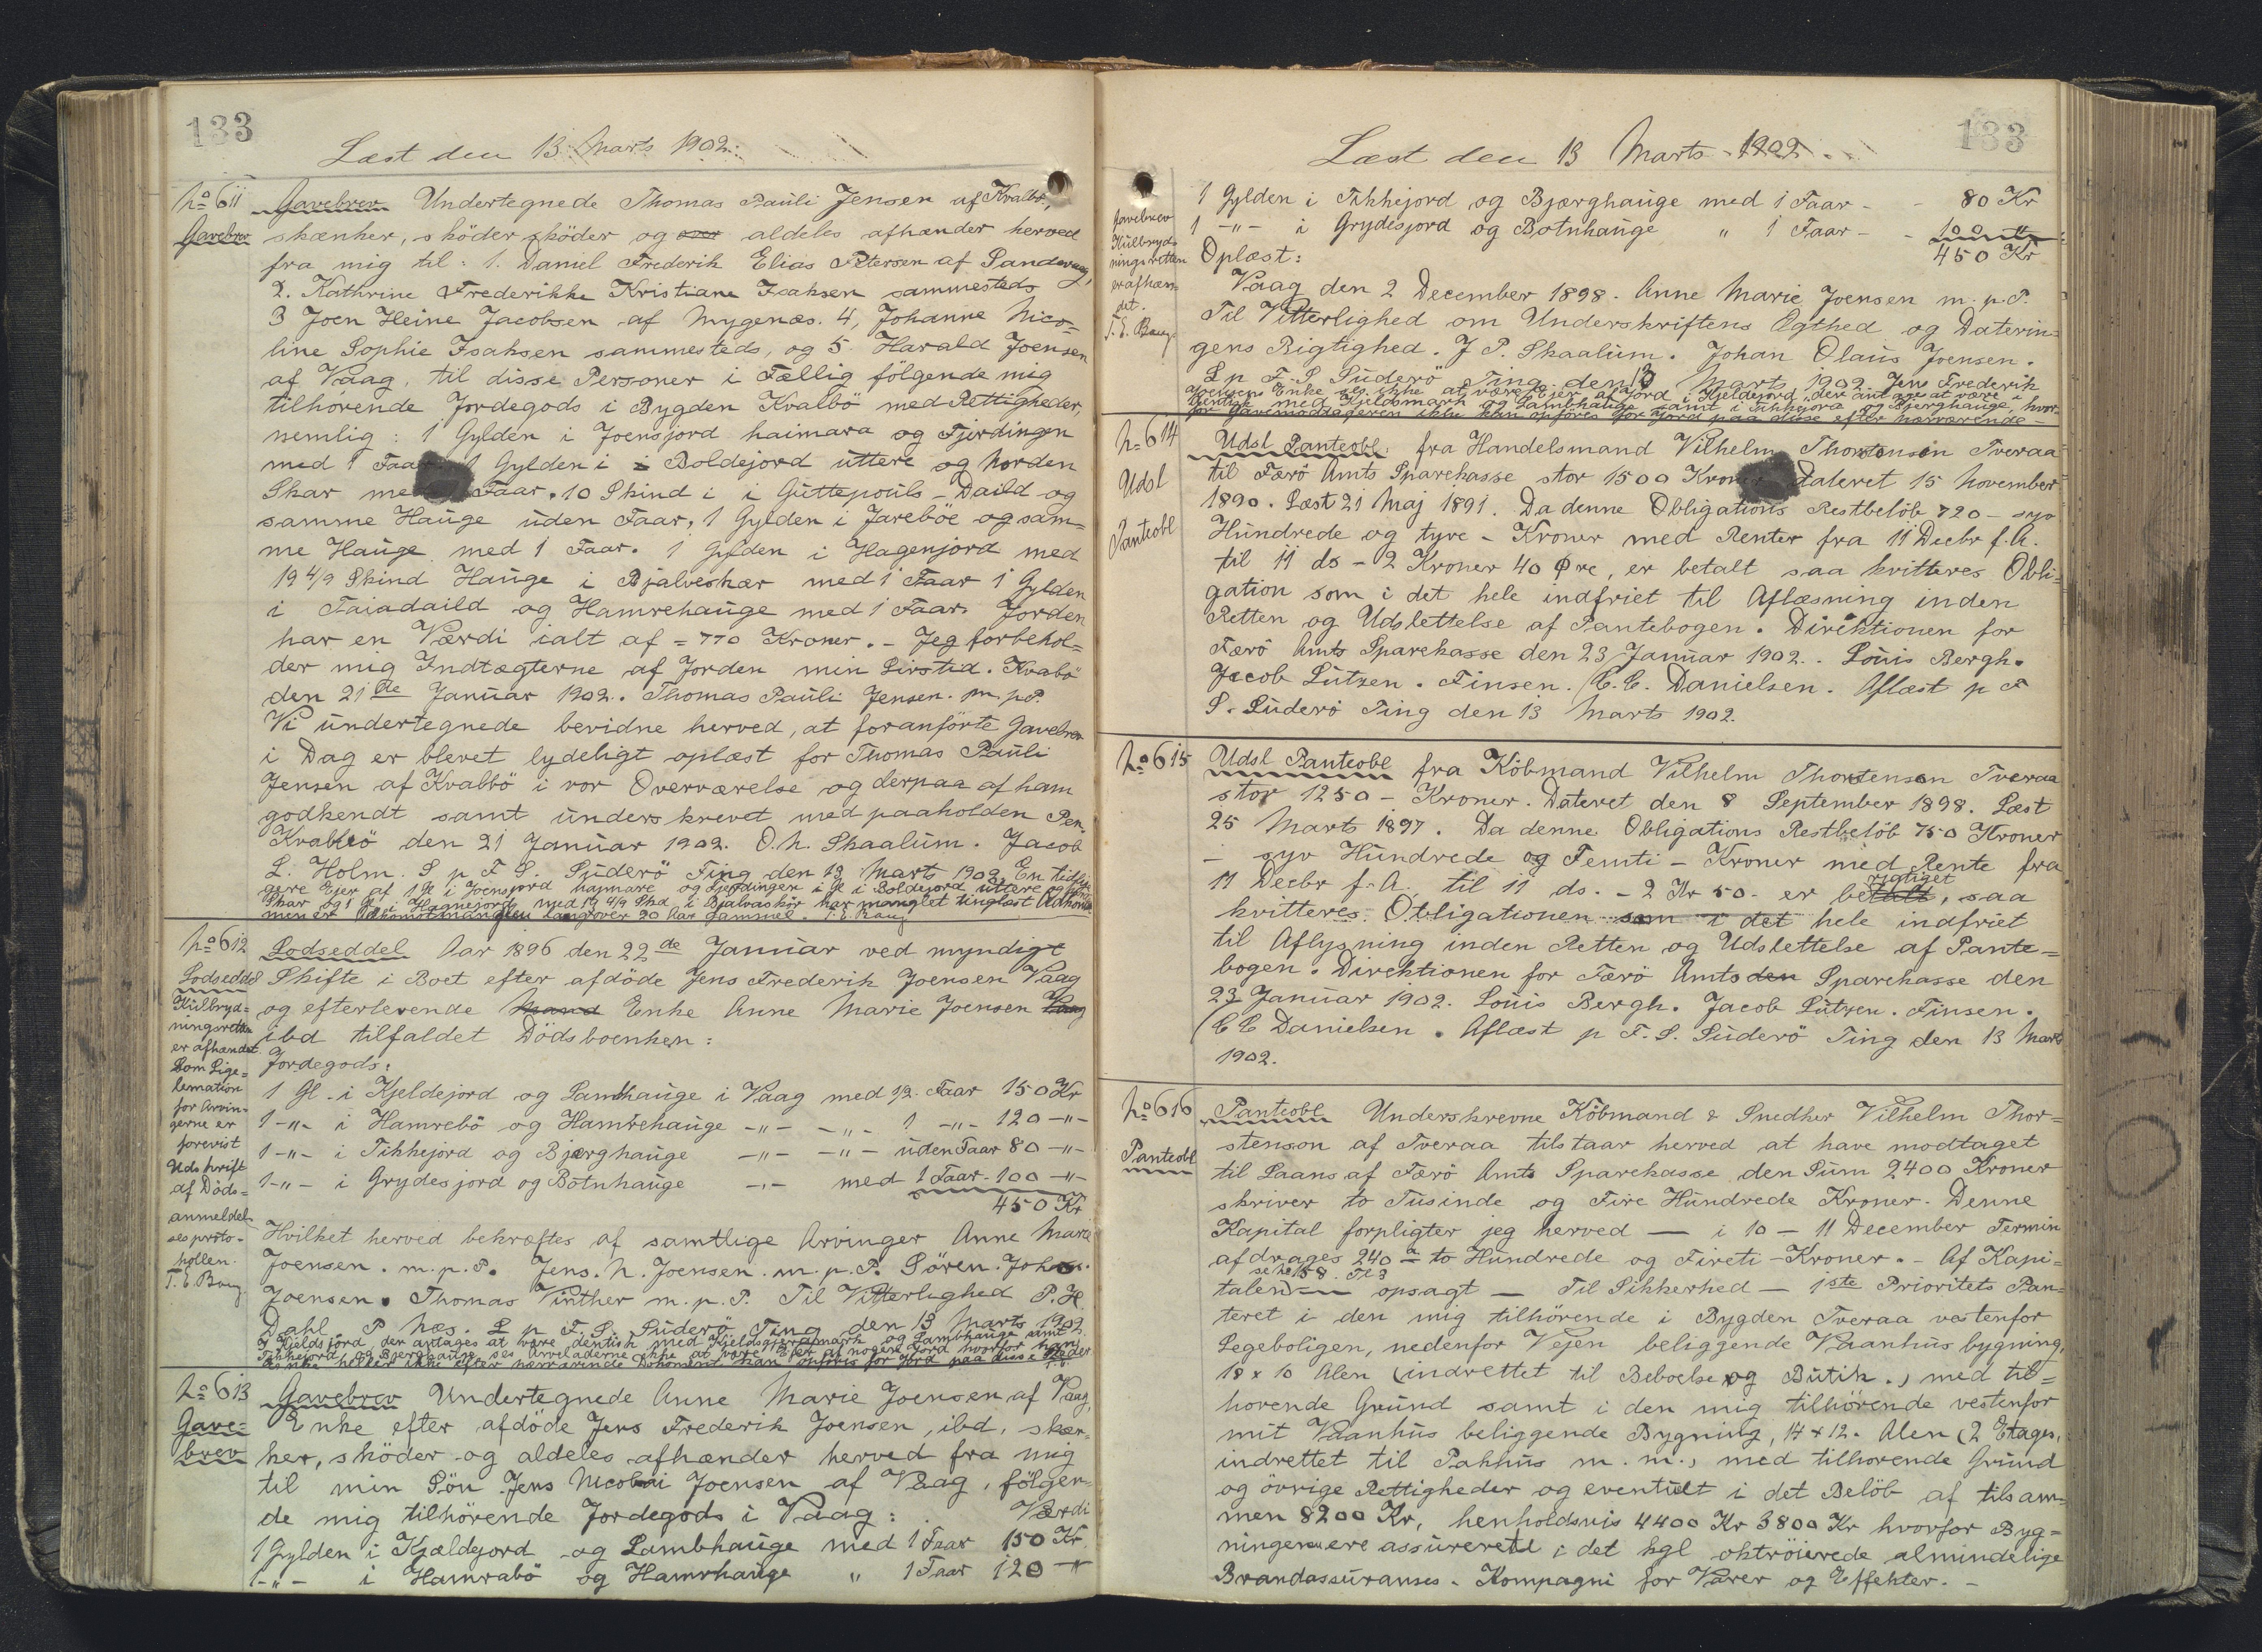 133
Læst den 13. Marts 1902.
No 611
Gavebrev
Gavebrev Undertegnede Thomas Pauli Jensen af Kvalbö,
skænker, sköder sköder og over aldeles afhænder herved
fra mig til: 1. Daniel Frederik Elias Petersen af Sandevaag,
2. Kathrine Frederikke Kristiane Isaksen sammesteds
3 Joen Heine Jacobsen af Mygenæs. 4, Johanne Nico=
line Sophie Isaksen sammesteds, og 5. Harald Joensen
af Vaag, til disse Personer i Fællig fölgende mig
tilhörende Jordegods i Bygden Kvalbö med Rettigheder,
nemlig: 1 Gylden i Joensjord haimara og Fjerdingen
med 1 Faar. 1 Gylden i i Boldejord uttere og Norden
Skar med Faar. 10 Skind i i Guttepouls-Daild og
samme Hauge uden Faar, 1 Gylden i Jareböe og sam=
me Hauge med 1 Faar. 1 Gylden i Hagenjord med
19 4/9 Skind Hauge i Bjalveskær med 1 Faar 1 Gylden
i Faiadaild og Hamrehauge med 1 Faar. Jorden
har en Værdi ialt af = 770 Kroner. - Jeg forbehol=
der mig Indtægterne af Jorden min Livstid. Kvabö
den 21de Januar 1902. Thomas Pauli Jensen. m. p. P.
Vi undertegnede bevidne herved, at foranförte Gavebrev
i Dag er blevet lydeligt oplæst for Thomas Pauli
Jensen af Kvalbö i vor Overværelse og derpaa af ham
godkendt samt underskrevet med paaholden Pen.
Kvalbö den 21 Januar 1902. O. N. Skaalum. Jacob
L. Holm. L p F S. Suderö Ting den 13 Marts 1902 En tidli
gere Ejer af 1 Gl i Joensjord hajmare og Fjerdingen 1 Gl i Boldejord uttere og
Skar og 1 Gl i Hagnejord med 19 4/9 Skd. i Bjalvaskör har manglet tinglæst Adkomst
men er Adkomstmanglen langt over 20 Aar gammel. T. E. Bang
No 612
Lodseddel
Kulbryd=
ningsretten
er afhændet
Som Lige=
temation
for Arvin=
gerne er
forevist
Udskrift
af Döds=
anmeldel=
sesproto=
kollen.
T. E. Bang
Lodseddel Aar 1896 den 22de Januar ved myndigt
Skifte i Boet efter afdöde Jens Frederik Joensen Vaag
og efterlevende Mand Enke Anne Marie Joensen Vaag
ibd tilfaldet Dödsboenken:
Jordegods:
1 Gl. i Kjeldejord og Lambhauge i Vaag med 1/2 Faar 150 Kr
1 -"- i Hamrebö og Hamrehauge -"- -"- 1 -"- 120 -"-
1 -"- i Tikkejord og Bjærghauge -"- -"- uden Faar 80 -"-
1 -"- i Grydesjord og Botnhauge -"- med 1 Faar - 100 -"-
450 Kr
Hvilket herved bekræftes af samtlige Arvinger Anne Marie
Joensen. m. p. P. Jens. N. Joensen. m. p. P. Sören. Johan.
Joensen. Thomas Vinther m. p. P. Til Vitterlighed P. H
Dahl P Næs. L p F. S. Suderö Ting den 13 Marts 1902
I Kjeldsjord, der antages at være identisk med Kjeldsgjerdmark og Lambhauge samt
Tikkejord og Bjerghauge ses Arveladerne ikke at være Ejer af nogen Jord hvorfor hans
Enke heller ikke efter nærværende Dokument kan anföres for Jord paa disse Steder
No 613
Gave=
brev
Gavebrev Undertegnede Anne Marie Joensen af Vaag,
Enke efter afdöde Jens Frederik Joensen, ibd, skæn-
ker, sköder og aldeles afhænder herved fra mig
til min Sön Jens Nicolai Joensen af Vaag, fölgen=
de mig tilhörende Jordegods i Vaag: Værdi
1 Gylden i Kjældejord og Lambhauge med 1 Faar 150 Kr
1 -"- i Hamrabö og Hamrhauge " 1 Faar 120 -"
133
Læst den 13 Marts 1902.
Gavebrev
Kulbryd=
ningsretten
er afhæn=
det.
T. E. Bang
1 Gylden i Tikkejord og Bjærghauge med 1 Faar - - 80 Kr
1 -"- i Grydesjord og Botnhauge " 1 Faar - - 100 "
450 Kr
Oplæst:
Vaag den 2 December 1898. Anne Marie Joensen m. p. P.
Til Vitterlighed om Underskriftens Ægthed og Daterin=
gens Rigtighed. J P. Skaalum. Johan Olaus Joensen.
L p F. S Suderö Ting den 13 Marts 1902 Jens Frederik
Joensens Enke ses ikke at være Ejer af Jord i Kjeldejord, der antages at være i
dentisk med Kjeldsmark og Lambhauge samt i Tikkejord og Bjerghauge, hvor-
for Gavemodtageren ikke kan anföres for Jord paa disse efter nærværende -
No 614
Udsl
Panteobl
Udsl Panteobl. fra Handelsmand Vilhelm Thorstensen Tveraa
til Færö Amts Sparekasse stor 1500 Kroner Dateret 15 November
1890. Læst 21 Maj 1891. Da denne Obligations Restbelöb 720 - syv
Hundrede og tyve - Kroner med Renter fra 11 Decbr f. A.
til 11 ds - 2 Kroner 40 Øre, er betalt saa kvitteres Obli=
gation som i det hele indfriet til Aflæsning inden
Retten og Udslettelse af Pantebogen. Direktionen for
Færö Amts Sparekasse den 23 Januar 1902. Louis Bergh.
Jacob Lützen. Finsen. C. C. Danielsen. Aflæst p F
S. Suderö Ting den 13 Marts 1902.
No 615
Udsl Panteobl fra Köbmand Vilhelm Thorstenson Tveraa
stor 1250 - Kroner. Dateret den 8 September 1898. Læst
25 Marts 1897. Da denne Obligations Restbelöb 750 Kroner
- syv Hundrede og Femti - Kroner med Rente fra
11 Decbr f. A. til 11 ds. - 2 Kr 50 - er betalt rigtiget, saa
kvitteres. Obligationen som i det hele indfriet
til Aflysning inden Retten og Udslettelse af Pante=
bogen. Direktionen for Færö Amts den Sparekasse den
23 Januar 1902. Louis Bergh. Jacob Lützen. Finsen.
C C Danielsen. Aflæst p F. S. Suderö Ting den 13 Marts
1902.
No 616
Panteobl
Panteobl Underskrevne Köbmand & Snedker Vilhelm Thor=
stenson af Tveraa tilstaar herved at have modtaget
til Laans af Færö Amts Sparekasse den Sum 2400 Kroner
skriver to Tusinde og Fire Hundrede Kroner. Denne
Kapital forpligter jeg herved — i 10 - 11 December Termin
afdrages 240 - to Hundrede og Fireti Kroner. - Af Kapi=
talen — opsagt — Til Sikkerhed — 1ste Prioritets Pan=
teret i den mig tilhörende i Bygden Tveraa vestenfor
Legeboligen, nedenfor Vejen beliggende Vaanhusbygning,
18 x 10 Alen (indrettet til Beboelse og Butik.) med til=
horende Grund samt i den mig tilhörende vestenfor
mit Vaanhus beliggende Bygning, 14 x 12. Alen (2 Etages,
indrettet til Pakhus m. m., med tilhorende Grund
og övrige Rettigheder og eventuelt i det Belöb af tilsam=
men 8200 Kr, henholdsvis 4400 Kr 3800 Kr hvorfor Byg=
ningerne ere assurerede i det kgl oktroierede almindelige
Brandassurances-Kompagni for Varer og Effekter. -